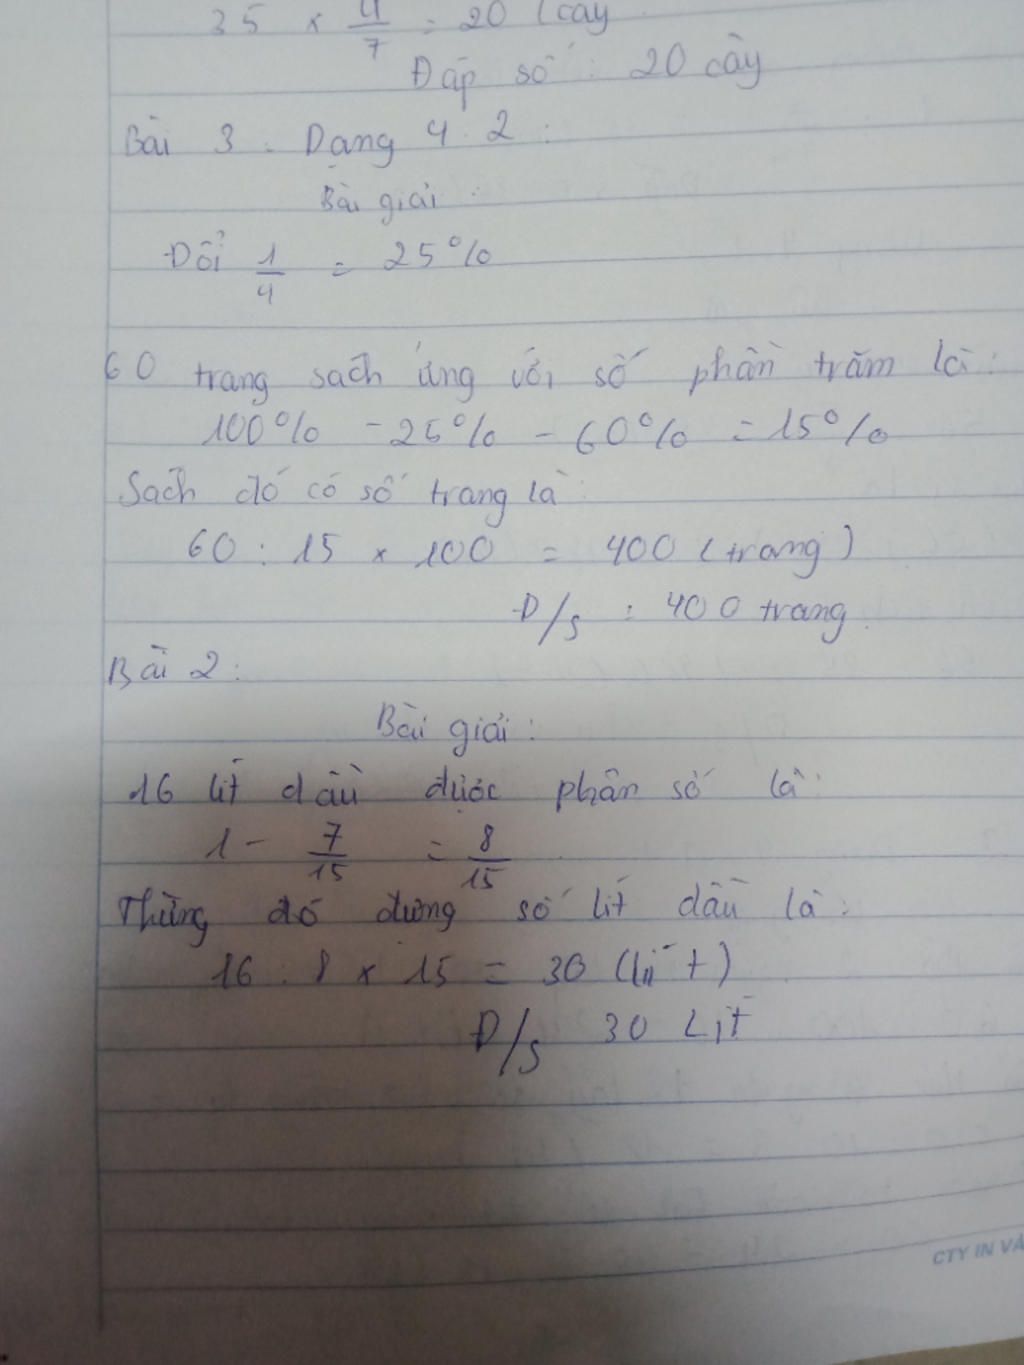 35 × 4/7 = 20 (cây
Đáp số : 20 cây
Bài 3 . Dạng 4.2 :
Bài giải :
Đổi 1/4 = 25%
60 trang sách ứng với số phần trăm là :
100% - 25% - 60% = 15%
Sách đó có số trang là :
60 : 15 × 100 = 400 (trang)
Đ/S : 400 trang.
Bài 2 :
Bài giải :
16 lít dầu được phân số là :
1 - 7/15 = 8/15
Thùng đó đựng số lít dầu là :
16 : 8 × 15 = 30 (lít)
Đ/S 30 Lít
CTY IN VĂ